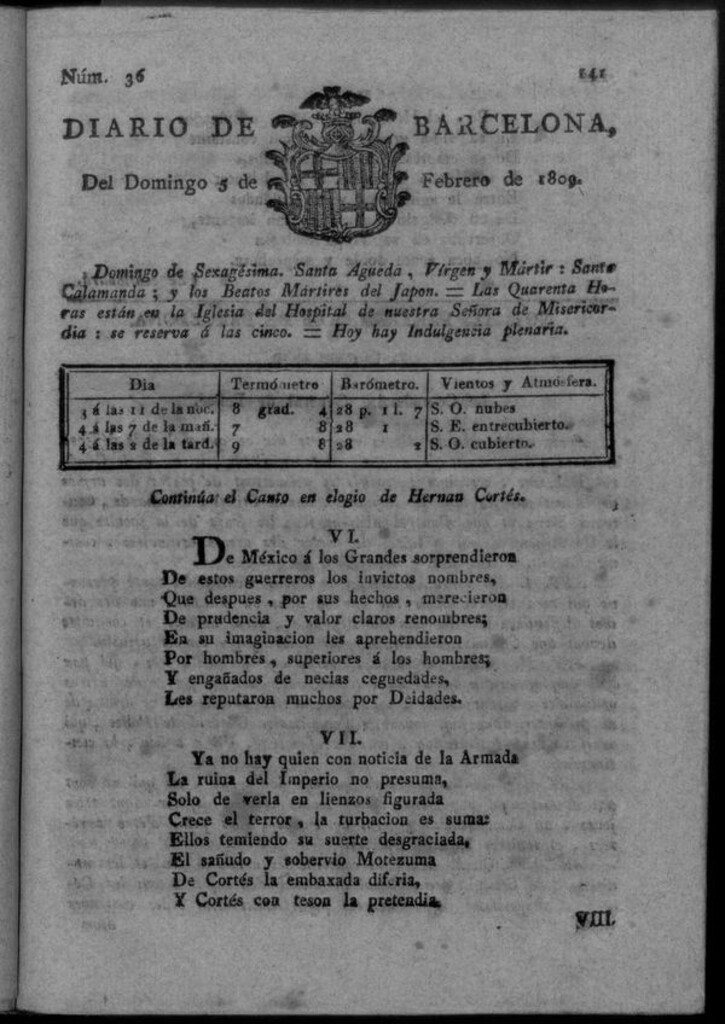 Núm. 36 141
DIARIO DE BARCELONA,
Del Domingo 5 de Febrero de 1809.
Domingo de Sexagésima. Santa Agueda, Vírgen y Mártir: Santa
Calamanda; y los Beatos Mártires del Japon. = Las Quarenta Ho-
ras están en la Iglesia del Hospital de nuestra Señora de Misericor-
dia: se reserva á las cinco. = Hoy hay Indulgencia plenaria.
Dia Termómetro Barómetro. Vientos y Atmósfera.
3 á las 11 de la noc. 8 grad. 4 28 p. 1 l. 7 S. O. nubes
4 á las 7 de la mañ. 7 8 28 1 S. E. entrecubierto.
4 á las 2 de la tard. 9 8 28 2 S. O. cubierto.
Continúa el Canto en elogio de Hernan Cortés.
VI.
De México á los Grandes sorprendieron
De estos guerreros los invictos nombres,
Que despues, por sus hechos, merecieron
De prudencia y valor claros renombres;
En su imaginacion les aprehendieron
Por hombres, superiores á los hombres;
Y engañados de necias ceguedades,
Les reputaron muchos por Deidades.
VII.
Ya no hay quien con noticia de la Armada
La ruina del Imperio no presuma,
Solo de verla en lienzos figurada
Crece el terror, la turbacion es suma:
Ellos temiendo su suerte desgraciada,
El sañudo y sobervio Motezuma
De Cortés la embaxada diferia,
Y Cortés con teson la pretendia.
VIII.